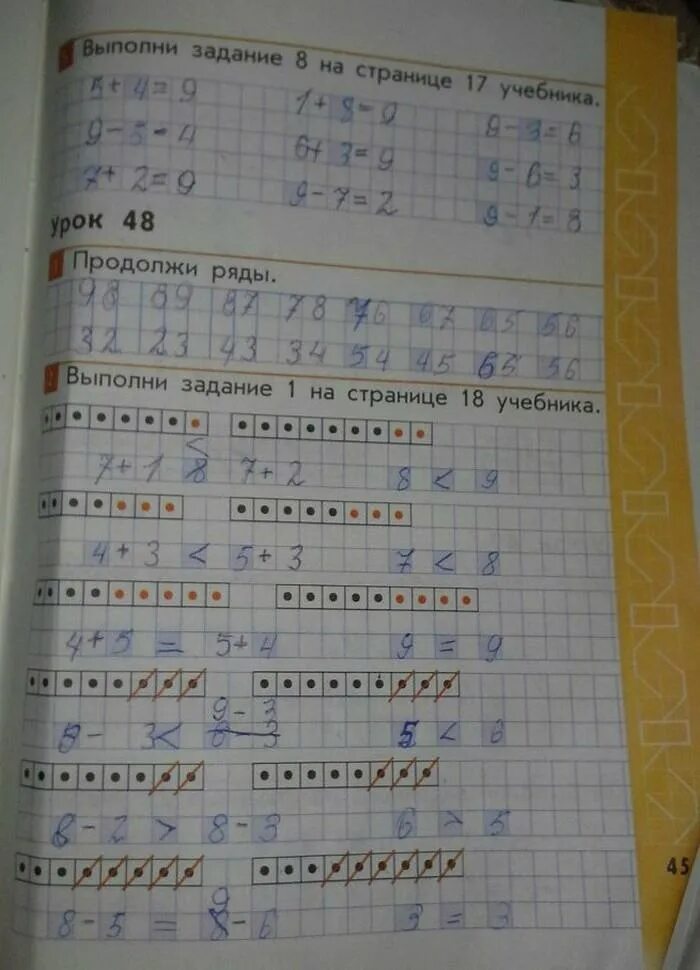 Выполни задание 8 на странице 17 учебника.
5+4=9 1+8=9 9-3=6
9-5=4 6+3=9 9-6=3
7+2=9 9-7=2 9-1=8
Урок 48
1 Продолжи ряды.
98 89 87 78 76 67 65 56
32 23 43 34 54 45 65 56
2 Выполни задание 1 на странице 18 учебника.
<
7+1 8 7+2 8 < 9
4+3 < 5+3 7 < 8
4+5 = 5+4 9 = 9
9-3
8-3 < 6-3 5 < 6
8-2 > 8-3 6 > 5
9
8-5 = 8-6 3 = 3
45